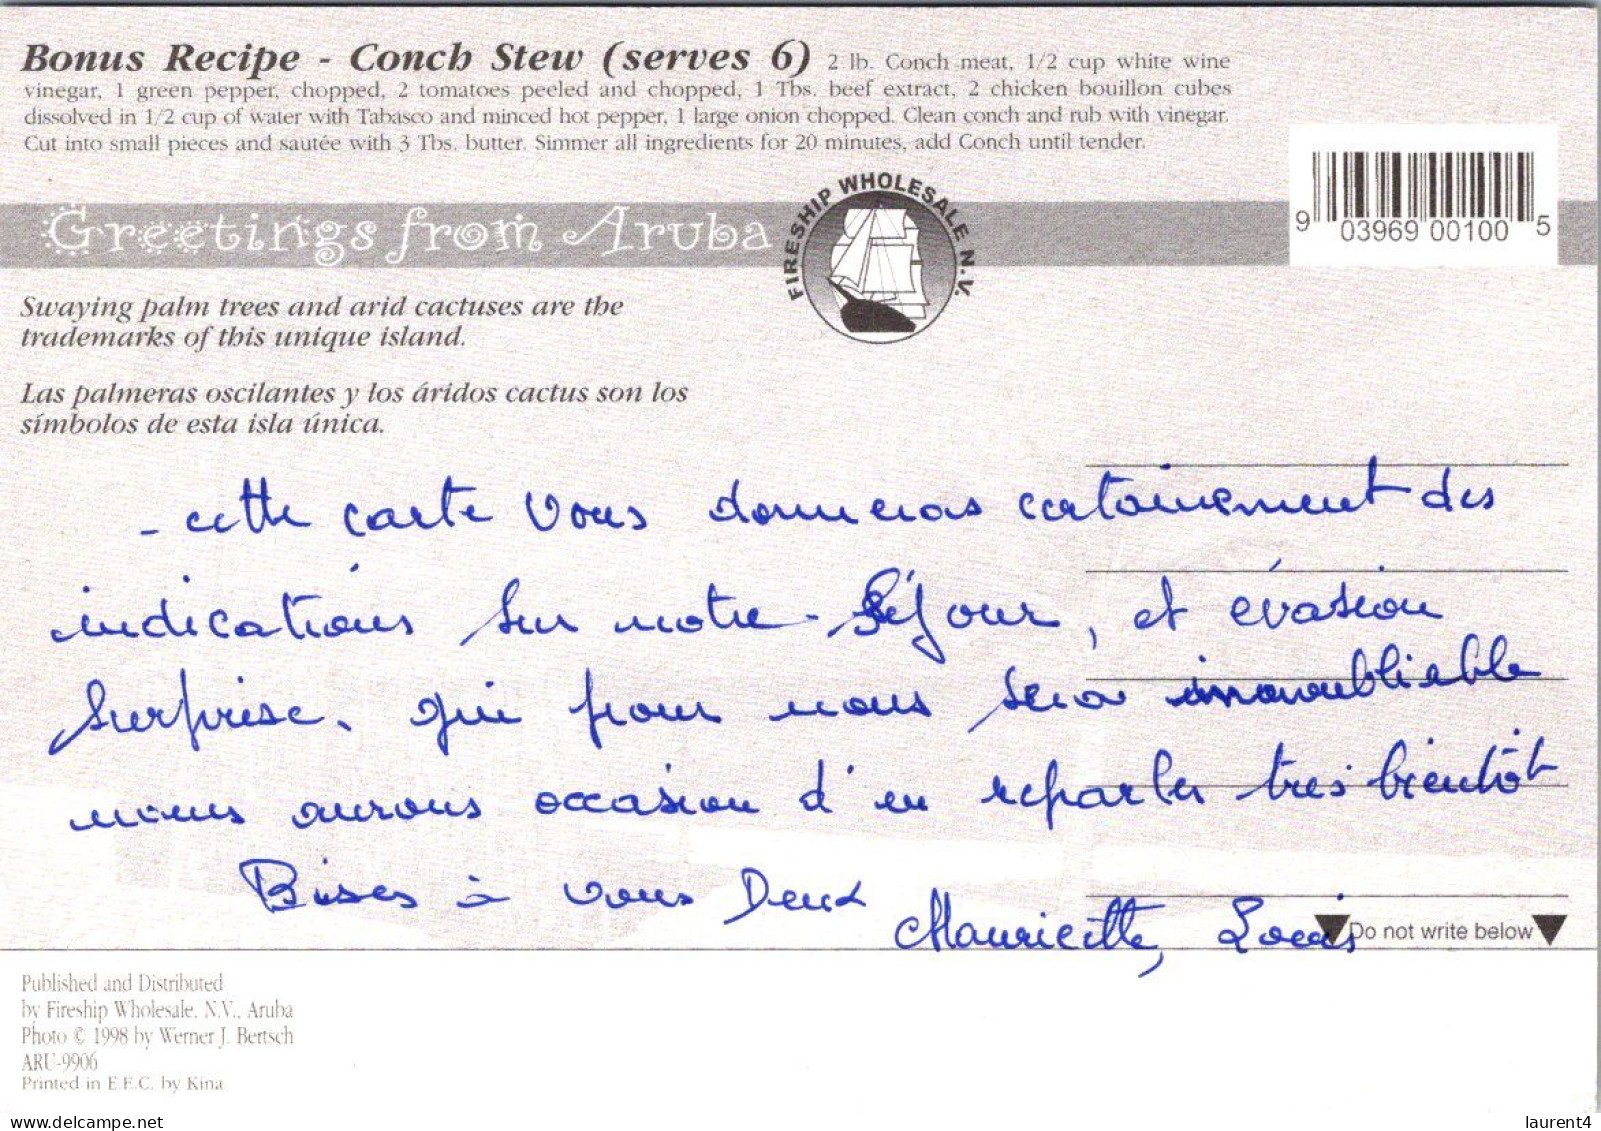 Bonus Recipe - Conch Stew (serves 6) 2 lb. Conch meat, 1/2 cup white wine
vinegar, 1 green pepper, chopped, 2 tomatoes peeled and chopped, 1 Tbs. beef extract, 2 chicken bouillon cubes
dissolved in 1/2 cup of water with Tabasco and minced hot pepper, 1 large onion chopped. Clean conch and rub with vinegar.
Cut into small pieces and sautée with 3 Tbs. butter. Simmer all ingredients for 20 minutes, add Conch until tender.
9 03969 00100 5
Greetings from Aruba
FIRESHIP WHOLESALE N.V.
Swaying palm trees and arid cactuses are the
trademarks of this unique island.
Las palmeras oscilantes y los áridos cactus son los
símbolos de esta isla única.
- cette carte vous donneras certainement des
indications sur notre séjour, et évasion
surprise. qui pour nous sera innoubliable
nous aurons occasion d'en reparler très bientôt
Bises à vous Deux
Mauricette, Louis
Do not write below
Published and Distributed
by Fireship Wholesale, N.V., Aruba
Photo © 1998 by Werner J. Bertsch
ARU-9906
Printed in E.E.C. by Kina
www.delcampe.net
laurent4